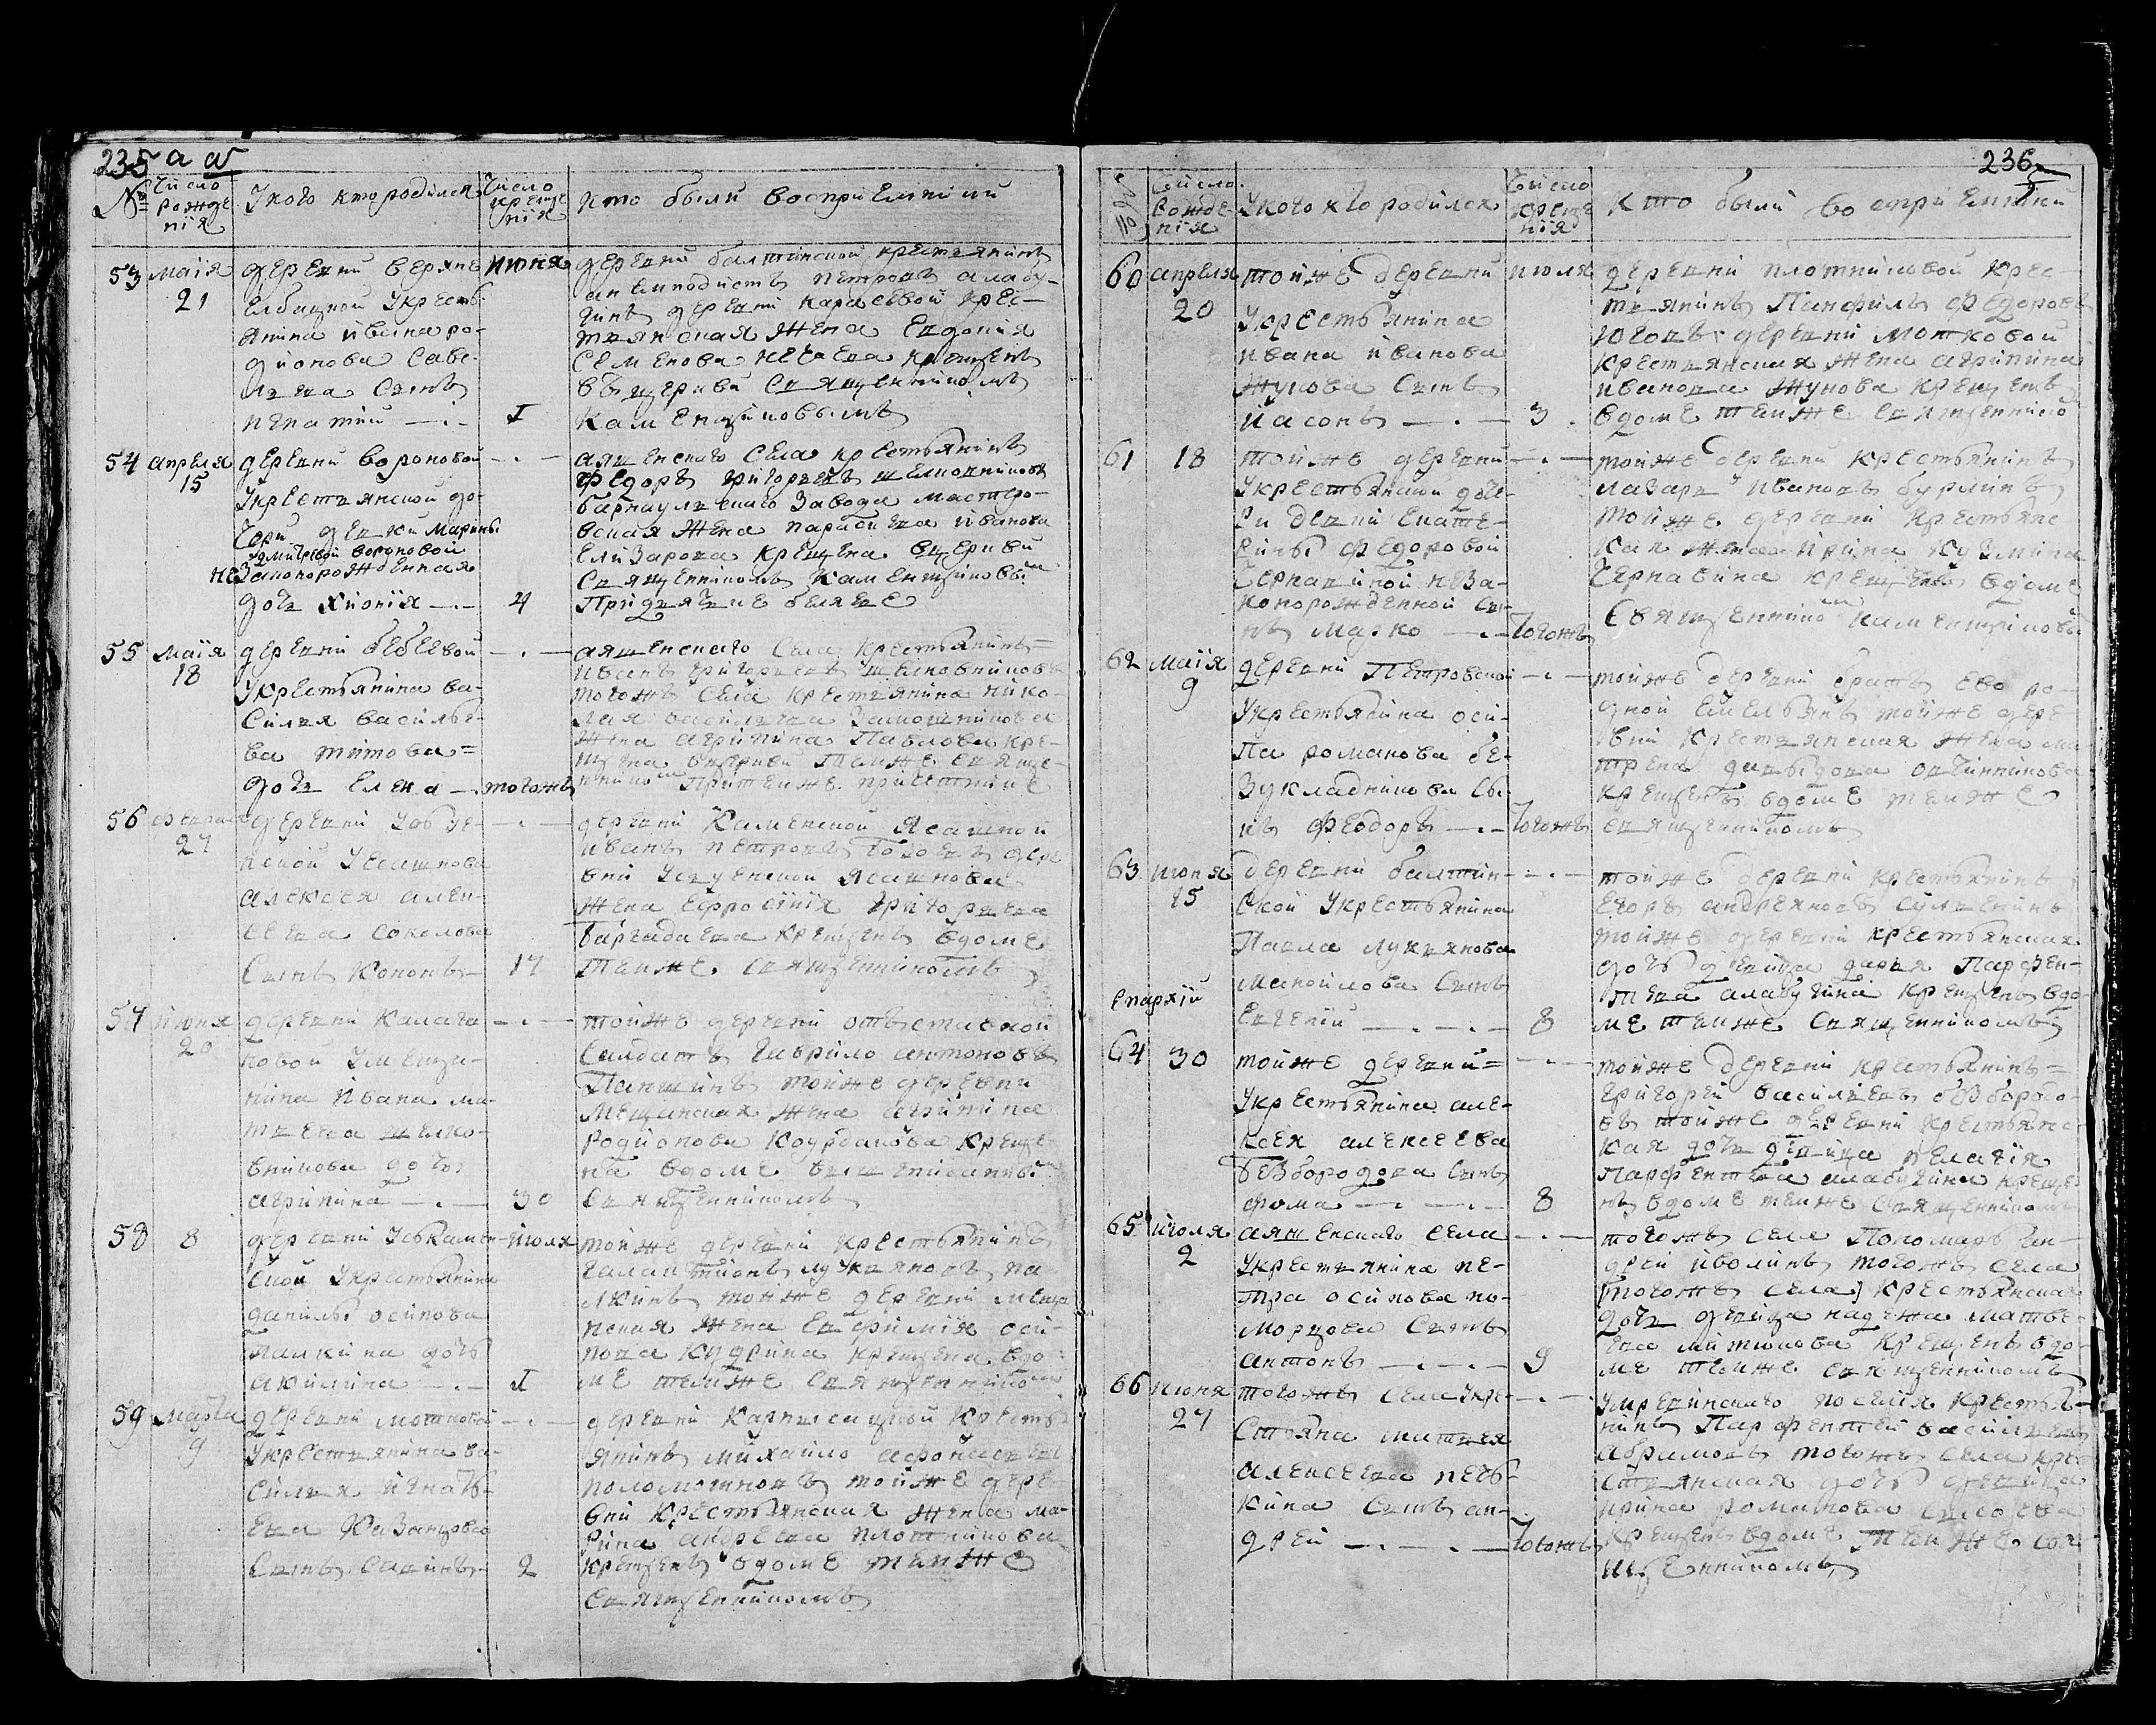 235
№
Число рождения
У кого кто родился
Число крещения
кто были восприемники
53
маія
21
деревни верхъ
Елбацкой Укресть
янина ивана ро
діонова Саве
льева Сынъ
игнатий
июня
1
деревни балтинской крестьянинъ
петровъ алабу
гинъ деревни карасевой крес
тьянская жена Евдокия
Семенова крещенъ
въ церкви Священникомъ
Каменщиковымъ
54
апреля
15
деревни вороновой
Укрестьянской до
чери девки Марины
вороновой
незаконорожденная
дочь хиония
4
аяшенскаго села крестьянинъ
Федоръ григорьевъ шелковниковъ
барнаулскаго завода мастеро
вская жена параскева иванова
Елизарова крещена вцеркви
Священникомъ Каменщиковым
При дьячке беляеве
55
маія
18
деревни бебеевой
Укрестьянина ва
силья василье
ва титова
дочь Елена
тогожъ
аяшенскаго Села Крестьянинъ
Иванъ григорьевъ шелковниковъ
тогожъ Села крестьянина нико
лая васильева
жена агрипина Павлова кре
щена вцеркви темже священ
ником
56
февраля
27
деревни Усть
алексея алек
сеева соколова
Сынъ Кононъ
17
деревни Каменской Ясашной
Иванъ петровъ дере
вни ясашнова
жена Ефросиния григорьева
крещенъ вдоме
темже Священникомъ
57
июня
20
деревни Калага
новой Умещи
нина Ивана ма
твеева шелко
вникова дочь
агрипина
30
тойже деревни отъставной
Салдатъ Гаврило антоновъ
Паншинъ тойже деревни
Мещанская жена агрипина
Родионова Коурдакова креще
на вдоме вышеписаннымъ
Священникомъ
58
8
деревни Усть камен
ской Укрестьянина
данилы осипова
палкина дочь
акилина
июля
1
тойже деревни крестьянинъ
галактионъ лукьяновъ па
лкинъ тойже деревни меща
нская жена Евфимия оси
пова Кудрина крещена вдо
ме темже священникомъ
59
Марта
9
деревни мотковой
Укрестьянина ва
силья игнать
ева Казанцова
Сынъ Савинъ
2
деревни Карпысацкой Кресть
янинъ михайло афонасьевъ
поломошновъ тойже дере
вни крестьянская жена ма
рина андреева плотникова
крещенъ вдоме темже
Священникомъ
236
№
Число рожде ния
Укого кто родился
Число креще ния
Кто были восприемники
60
апреля
20
тойже деревни
Укрестьянина
ивана иванова
Жукова Сынъ
Иасонъ
июля
3
деревни плотниковой крес
тьянинъ Панфилъ федоровъ
деревни мотковой
крестьянская жена агрипина
иванова Жукова крещенъ
вдоме темже священнико
61
18
тойже деревни
Укрестьянской доче
ри девки Екате
рины Федоровой
Чернавиной неза
конорожденной Сы
нъ марко
тогожъ
тойже деревни крестьянинъ
лазарь ивановъ бурлинъ
тойже деревни крестьянс
кая жена ирина Кузмина
Чернавина крещенъ вдоме
Священником каменщиковы
62
маія
9
деревни Петровской
Укрестьянина оси
па романова бе
зукладникова Сы
нъ Феодоръ
тогожъ
тойже деревни братъ ево ро
дной Емельянъ тойже дере
вни Крестьянская жена ма
трена давыдова овчинникова
крещенъ вдоме темже
священникомъ
63
июня
15
деревни балтин
ской Укрестьянина
Павла лукьянова
Манойлова Сынъ
Евгений
8
тойже деревни крестьянинъ
Егоръ андреяновъ
тойже деревни крестьянская
дочь девица дарья Парфен
тьева алабугина крещенъ вдо
ме темже Священникомъ
Епархіи
64
30
тойже деревни
Укрестьянина але
ксея алексеева
безбородова Сынъ
фома
8
тойже деревни крестьянинъ
григорей васильевъ безбородо
въ тойже деревни крестьянс
кая дочь девица пелагия
Парфентьева алабугина креще
нъ вдоме темже Священникомъ
65
июля
2
аяшенскаго села
Укрестьянина пе
тра осипова по
морцова Сынъ
антонъ
9
тогожъ села Пономарь ан
дрей иволинъ тогожъ села
(тогожъ села) крестьянская
дочь девица надежа матве
ева крещенъ вдо
ме темже священникомъ
66
июня
27
тогожъ села Укре
стьяна матвея
алексеева печь
кина Сынъ ан
дрей
тогожъ
крестья
нинъ Парфентей васильевъ
абрамовъ тогожъ села кре
стьянская дочь девица
ирина романова
крещенъ вдоме темже свя
щенникомъ